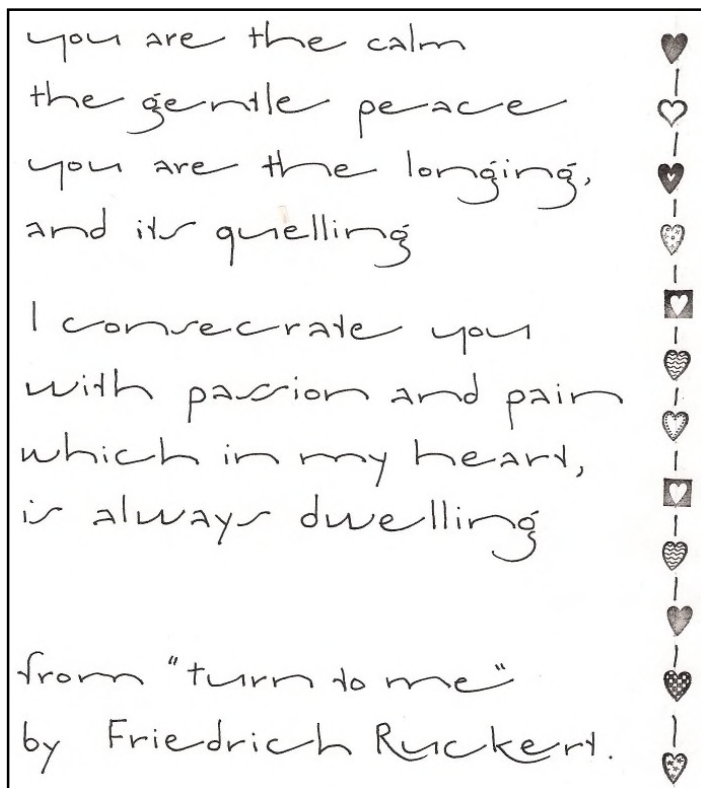 you are the calm
the gentle peace
you are the longing,
and its quelling
I consecrate you
with passion and pain
which in my heart,
is always dwelling
from "turn to me"
by Friedrich Ruckert.